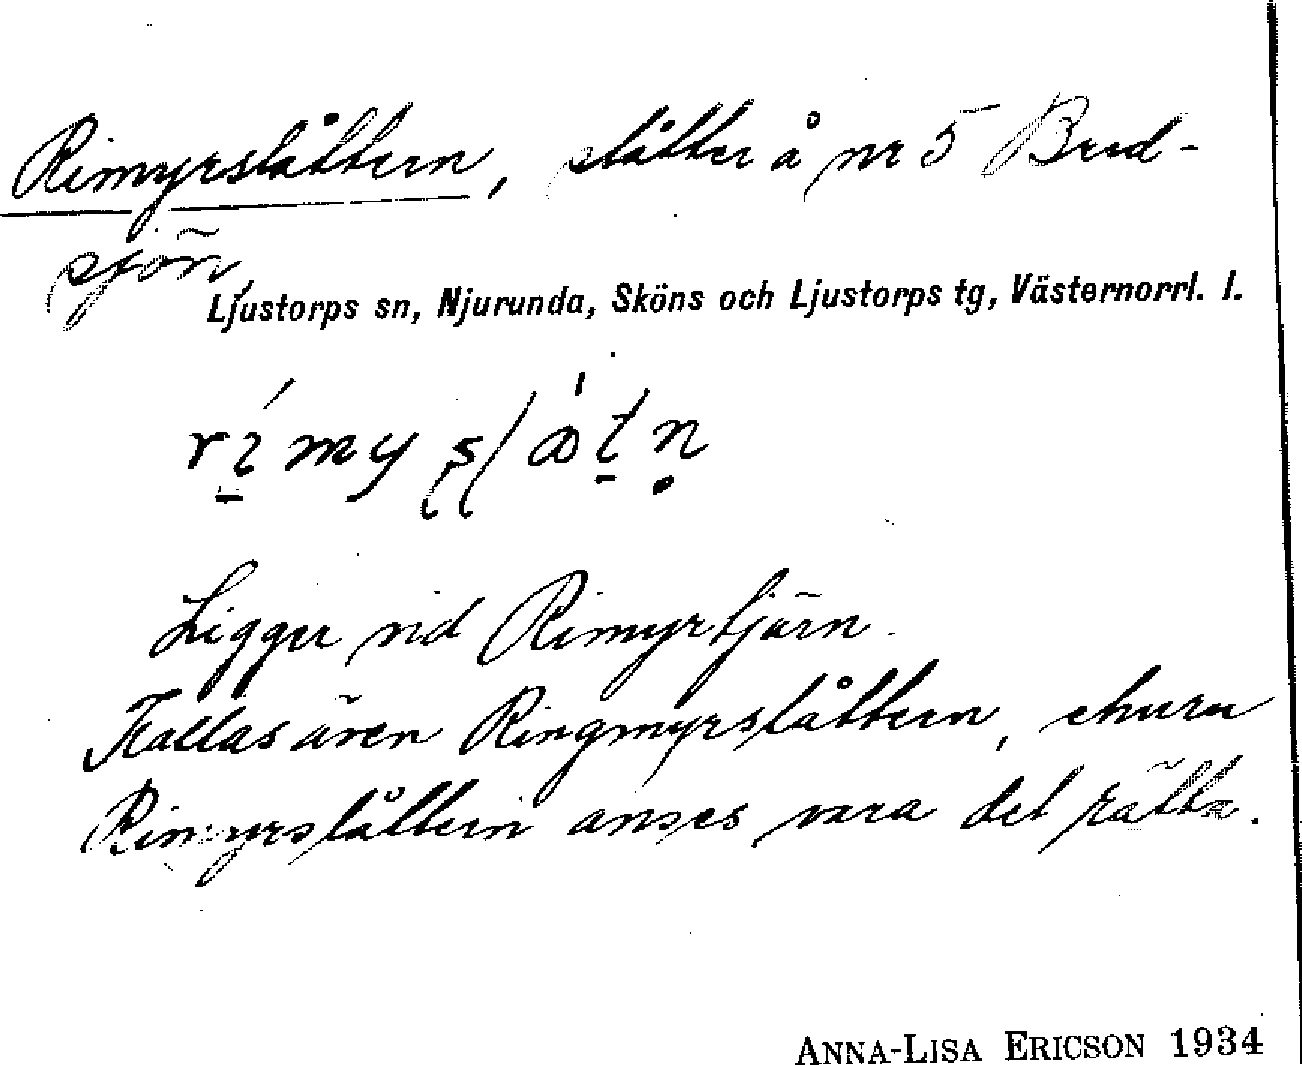 Rimyrslåttern, slåtter å nr 5 Bred-
sjön,
Ljustorps sn, Njurunda, Sköns och Ljustorps tg, Västernorrl. l.
Ligger vid Rimyrtjärn.
Kallas även Ringmyrslåttern, ehuru
Rimyrslåttern anses vara det rätta.
ANNA-LISA ERICSON 1934